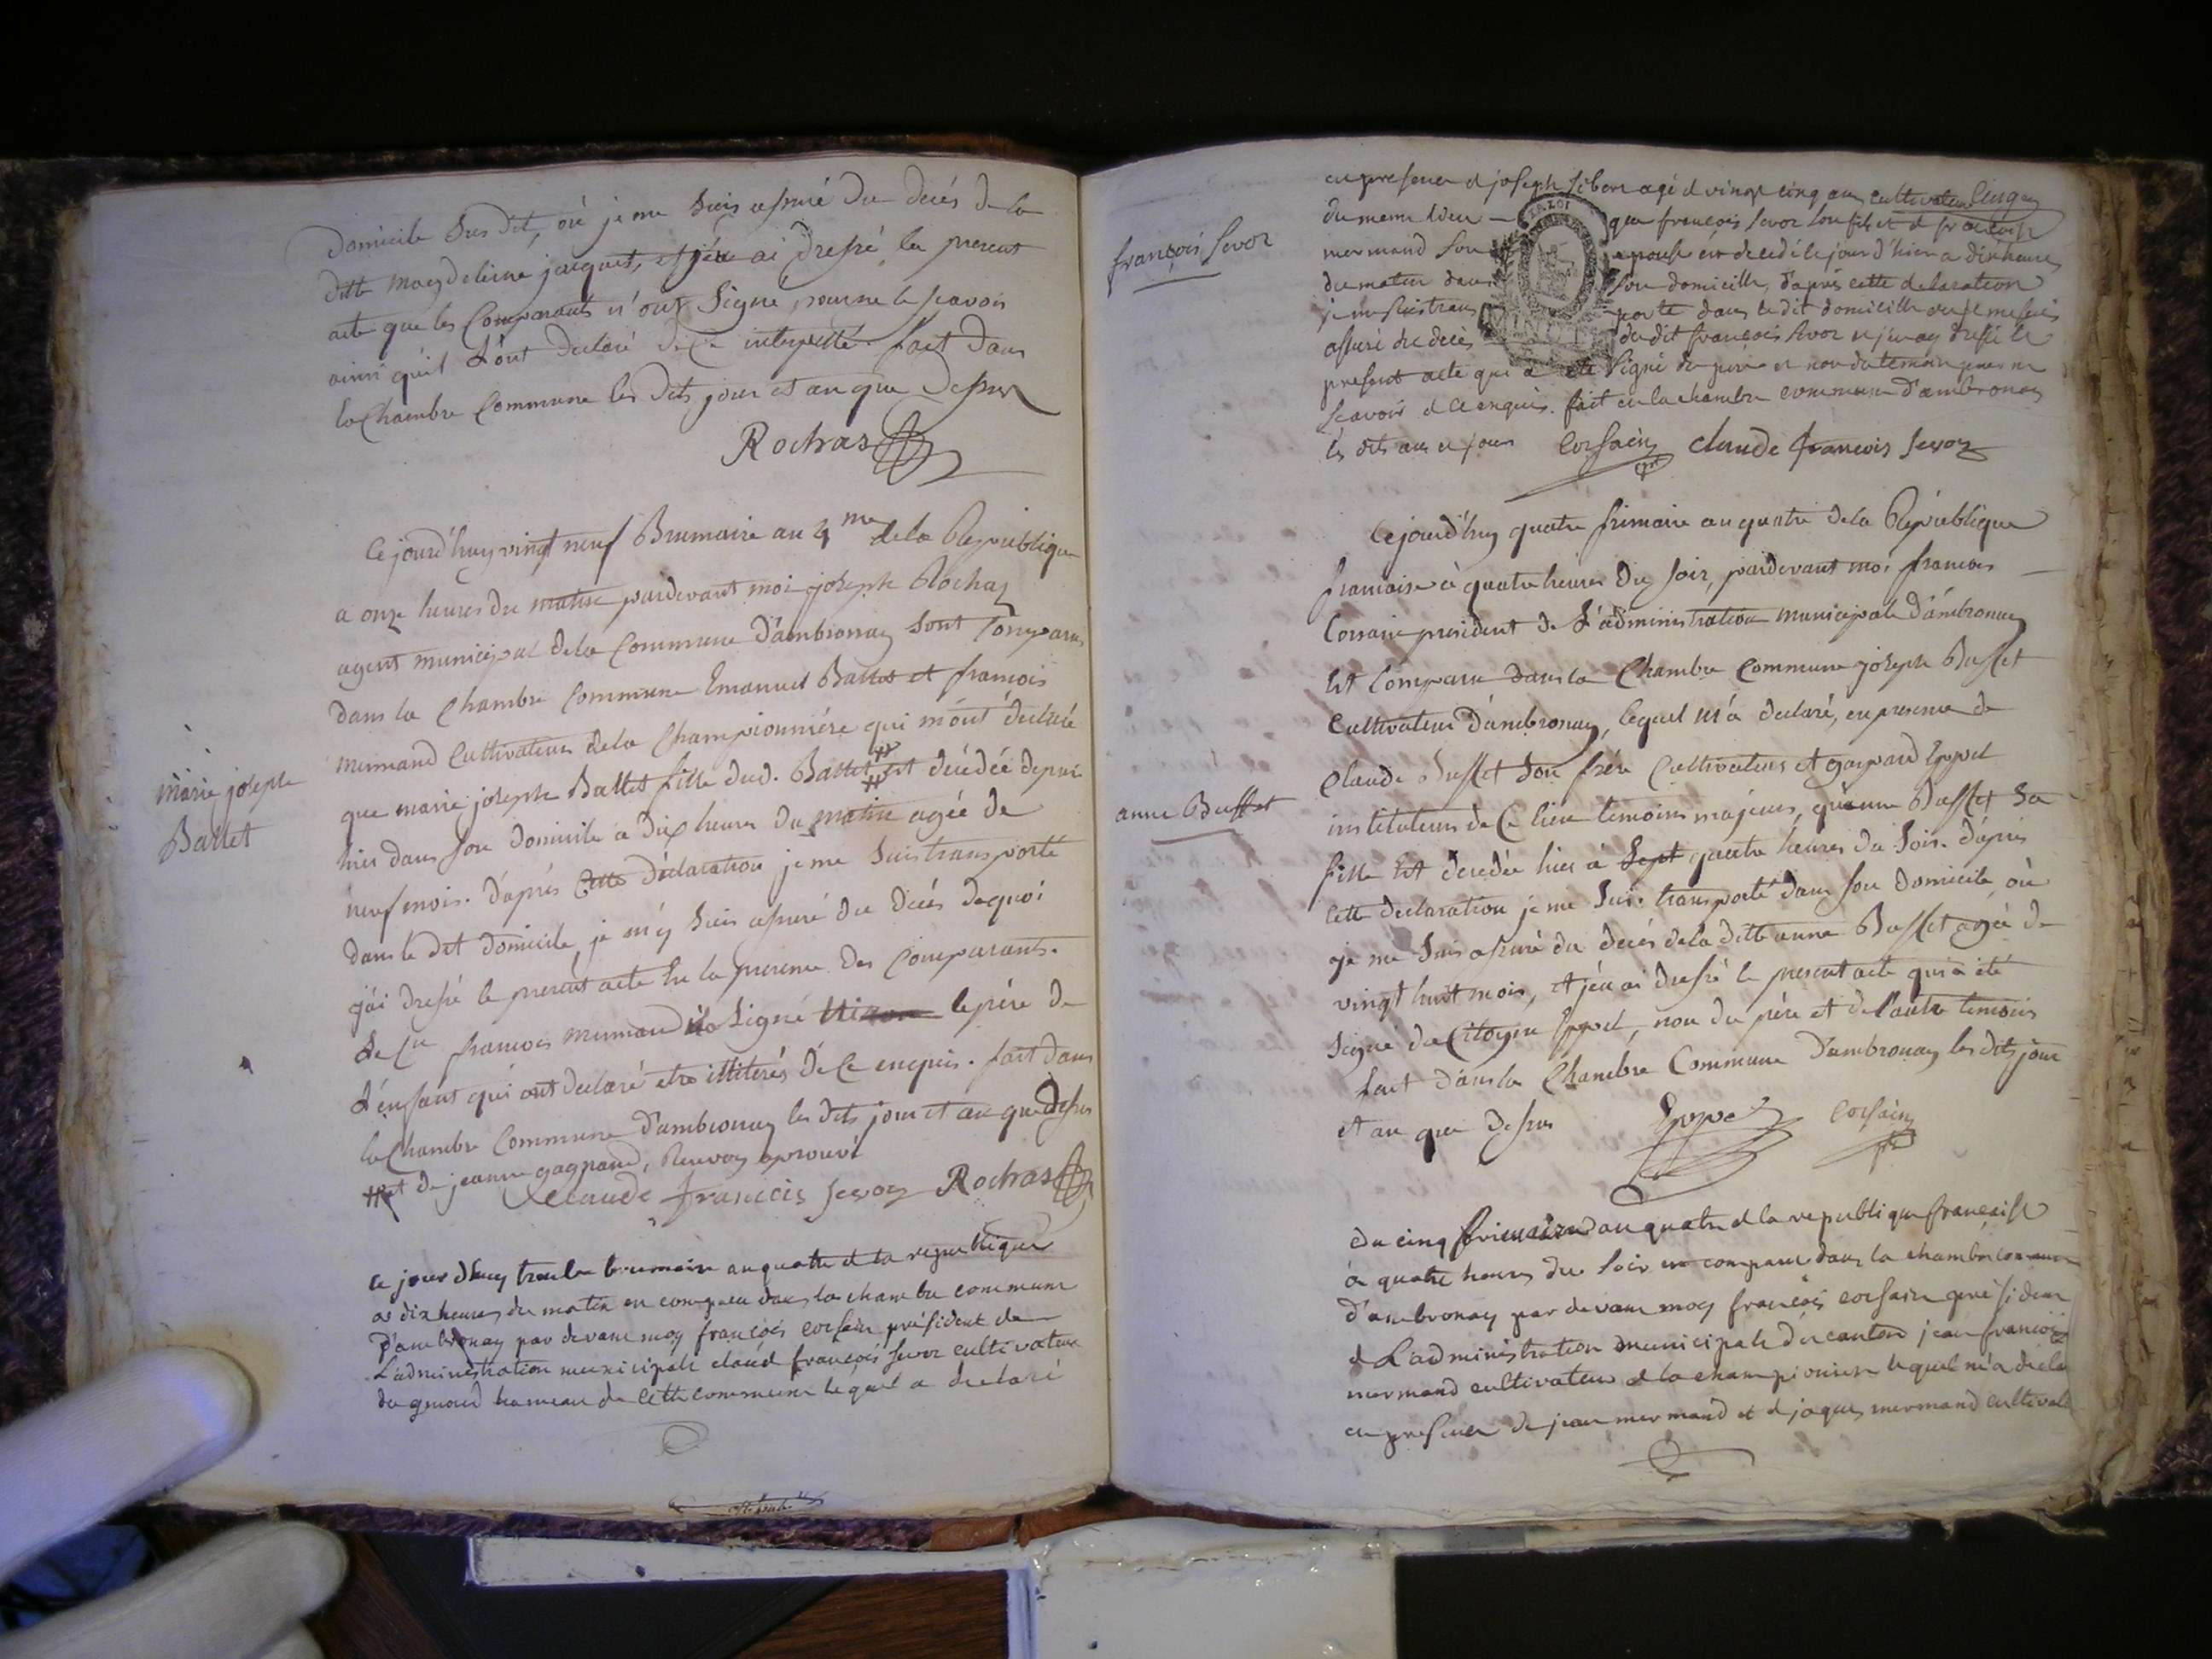 domicile sus dit, où je me suis assuré du decés de la
ditte magdeleine jacquet, et j'en ai dressé le present
acte que les Comparants n'ont signé pour ne le scavoir
ainsi qu'il l'ont declaré de ce interpellé fait dans
la Chambre Commune les dits jour et an que dessus
Rochas
Cejourd'huy vingt neuf Brumaire an 4me de la Republique
a onze heures du matin pardevant moi joseph Rochas
agent municipal de la Commune d'ambronay sont Comparus
dans la Chambre Commune Emanuel Battet et francois
mermand Cultivateurs de la Championnière qui m'ont declaré
que marie joseph Battet fille dud. Battet # est décédée depuis
marie joseph
Battet
hier dans son domicile a dix heures du matin agée de
neuf mois. d'après Cette déclaration je me suis transporté
dans le dit domicile, je m'y suis assuré du decés de quoi
j'ai dressé le present acte en la presence des Comparants.
de ce francois mermand a signé le père de
l'enfant qui ont declaré etre illiterés de ce enquis. fait dans
la Chambre Commune d'ambronay les dits jour et an que dessus
# et de jeanne gagnand, Renvoy aprouvé
Claude francois sevoz Rochas
ce jour dhuy trente brumaire an quatre d la republique
a dix heures du matin en comparu dans la chambre commune
d'ambronay par devant moy françois corsain président de
L'administration municipale claud françois sevoz cultivateur
du hameau de cette commune lequel a declaré
en presence d joseph agé d vingt cinq ans cultivateur
du meme lieu que françois sevoz son fils et d francoise
françois sevoz
mermand son epouse est decedé le jour d'hier a dix heures
du matin dans son domicille, d'après cette declaration
je me suis transporté dans le dit domicille ou je me suis
assuré du décès du dit françois sevoz et j'en ay dressé le
present acte qui a été signé du père et non du temoin pour ne
scavoir d ce enquis. fait en la chambre commune d'ambronay
les dits an et jour corsain claude francois sevoz
Cejourd'huy quatre frimaire an quatre de la République
francaise à quatre heures du soir, pardevant moi francois
Corsain president de L'administration municipale d'ambronay
Est Comparu dans la Chambre Commune joseph Buffet
Cultivateur d'ambronay, lequel m'a declaré, en presence de
Claude Buffet son frère Cultivateur et gaspard Eppel
anne Buffet
instituteur de Ce lieu temoins majeurs, qu'anne Buffet sa
fille Est décedée hier à sept quatre heures du soir. d'après
Cette declaration je me suis transporté dans son domicile où
je me suis assuré du decés de la ditte anne Buffet agée de
vingt huit mois, et j'en ai dressé le present acte qui a été
signé du Citoyen Eppel, non du père et de l'autre temoin
fait dans la Chambre Commune d'ambronay les dits jour
et an que dessus Eppel corsain
du cinq frimaire an quatre d la republique française
a quatre heures du soir est comparu dans la chambre commune
d'ambronay par devant moy françois corsain président
d L'administration municipale du canton jean francois
mermand cultivateur d la championiere lequel m'a decla
en presence de jean mermand et d jaques mermand cultivat